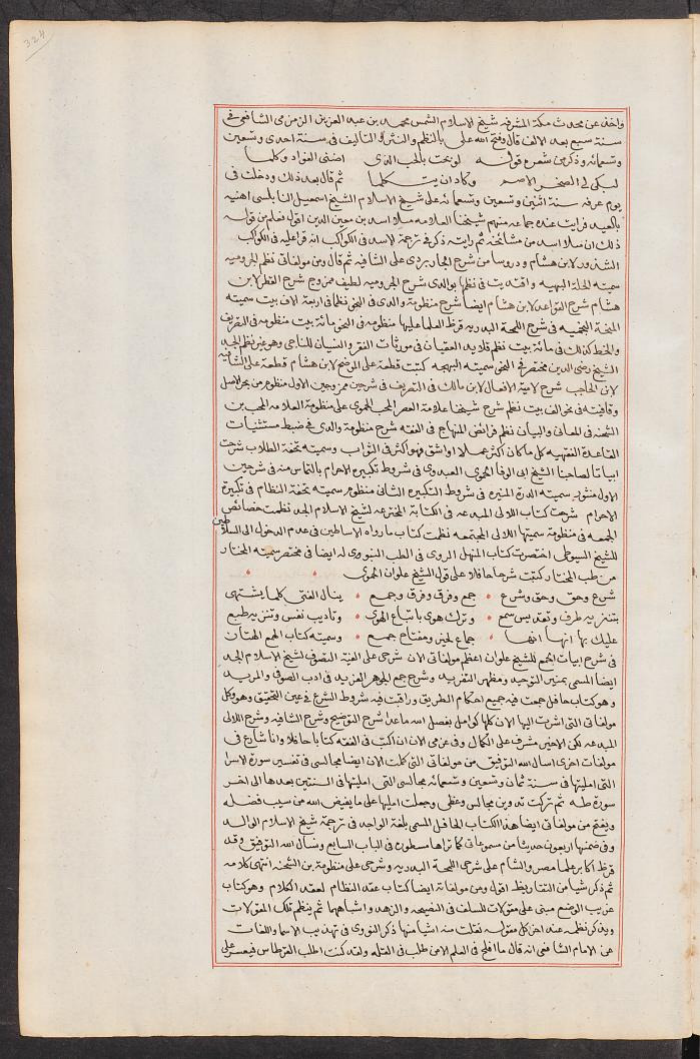 324
واخذ عن محدث مكة المشرفة شيخ الاسلام الشمس محمد بن عبد العزيز الزمزمى الشافعى فى
سنة سبع بعد الالف قال وفتح الله على بالنظم والنثر والتاليف فى سنة احدى وتسعين
وتسعمائة وذكر من شعره قوله لو بحت بالحب الذى اضنى الفواد وكلما
لبكى لى الصخر الاصم وكاد ان يتكلما ثم قال بعد ذلك ودخلت فى
يوم عرفة سنة اثنين وتسعين وتسعمائة على شيخ الاسلام الشيخ اسمعيل النابلسى اهنيه
بالعيد فرايت عنده جماعة منهم شيخنا العلامه ملا اسد بن معين الدين اقول فعلم من قوله
ذلك ان ملا اسد من مشائخه ثم رايته ذكر فى ترجمة الاسد فى الكواكب انه قرا عليه فى الكواكب
الشذور لابن هشام ودروسا من شرح الجاربردى على الشافيه ثم قال ومن مولفاتى نظم الجروميه
سميته الحلة البهيه واقتديت فى نظمها بوالدى شرح الجروميه لطيف ممزوج شرح القطر لابن
هشام شرح القواعد لابن هشام ايضا شرح منظومة والدى فى النحو نظما فى اربعة الاف بيت سميته
المنحة النجميه فى شرح اللمحة البدريه قرظ العلما عليها منظومه فى النحو مائة بيت منظومه فى التصريف
والخط كذلك فى مائة بيت نظم قلايد العقيان فى مورثات الفقر والنسيان للناجى وهو عن نظم الجد
الشيخ رضى الدين مختصر فى النحو سميته البهجه كتبت قطعة على التوضيح لابن هشام قطعة على الشافية
لابن الحاجب شرح لامية الافعال لابن مالك فى التصريف فى شرحين ممزوجين الاول منظوم من بحر الاصل
وقافيته فى نحو الف بيت نظم شرح شيخنا علامة العصر المحب الحموى على منظومة العلامه المحب بن
الشحنه فى المعانى والبيان نظم فرائض المنهاج فى الفقه شرح منظومة والدى فى ضبط مستثنيات
القاعدة الفقهيه كل ما كان اكثر عملا او اشق فهو اكثر فى الثواب وسميته تحفة الطلاب شرحت
ابياتا لصاحبنا الشيخ ابى الوفا الحموى العبدوى فى شروط تكبيرة الاحرام بالتماس منه فى شرحين
الاول منثور سميته الدرة المنيرة فى شروط التكبيره الثانى منظوم سميته تحفة النظام فى تكبيرة
الاحرام شرحت كتاب اللالى المبدعه فى الكناية المخترعه لشيخ الاسلام الجد نظمت خصائص
الجمعه فى منظومة سميتها اللالى المجتمعه نظمت كتاب ما رواه الاساطين فى عدم الدخول الى السلاطين
للشيخ السيوطى اختصرت كتاب المنهل الروى فى الطب النبوى له ايضا فى مختصر سميته المختار
من طب المختار كتبت شرحا حافلا على قول الشيخ علوان الحموى
شرع وحق وحق وشرع جمع وفرق وفرق وجمع ينال الفتى كلما يشتهى
بتنزيه طرف وتقديس سمع وترك هوى باتباع الهدى وتاديب نفس وتنزيه طبع
عليك بها انها انها جماع لخير ومفتاح جمع وسميته كتاب الهمع الهتان
فى شرح ابيات الجمع للشيخ علوان اعظم مولفاتى الان شرحى على الفية التصوف لشيخ الاسلام الجد
ايضا المسمى بمنبر التوحيد ومظهر التفريد وشرح جمع الجوهر الفريد فى ادب الصوفى والمريد
وهو كتاب حافل جمعت فيه جميع احكام الطريق وراقبت فيه شروط الشرع فى عين التحقيق وهو وكل
مولفاتى التى اشرت اليها الان كلها كوامل بفضل الله ما عدا شرح التوضيح وشرح الشافيه وشرح اللالى
المبدعه لكن الاخير مشرف على الكمال وفى عزمى الان ان اكتب فى الفقه كتابا حافلا وانا شارع فى
مولفات اخرى اسال الله التوفيق من مولفاتى التى كملت الان ايضا مجالسى فى تفسير سورة الاسرا
التى امليتها فى سنة ثمان وتسعين وتسعمائه مجالسى التى امليتها فى السنتين بعدها الى اخر
سورة طه ثم تركت تدوين مجالس وعظى وجعلت امليها على ما يفيض الله من سيب فضله
ويفتح من مولفاتى ايضا هذا الكتاب الحافل المسمى بلغة الواجد فى ترجمة شيخ الاسلام الوالد
وفى ضمنها اربعون حديثا من مسموعاتى كما تراها مسطوره فى الباب السابع ونسال الله التوفيق وقد
قرظ اكابر علما مصر والشام على شرحى اللمحة البدريه وشرحى على منظومة بن الشحنه انتهى كلامه
ثم ذكر شيا من التقاريظ اقول ومن مولفاته ايضا كتاب عقد النظام لعقد الكلام وهو كتاب
غريب الوضع مبنى على مقولات للسلف فى النصيحه والزهد واشباههما ثم ينظم تلك المقولات
ويذكر نظمه عند اخر كل مقوله نقلت منه اشيا منها ذكر النووى فى تهذيب الاسما واللغات
عن الامام الشافعى انه قال ما افلح فى العلم الا من طلب فى القله ولقد كنت اطلب القرطاس فيعسر على